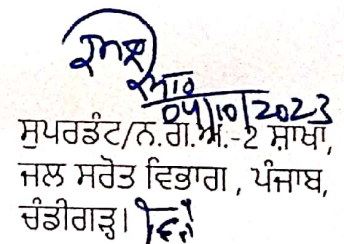 04/10/2023
ਸੁਪਰਡੰਟ/ਨ.ਗ.ਅ.-2 ਸ਼ਾਖਾ,
ਜਲ ਸਰੋਤ ਵਿਭਾਗ , ਪੰਜਾਬ,
ਚੰਡੀਗੜ੍ਹ।